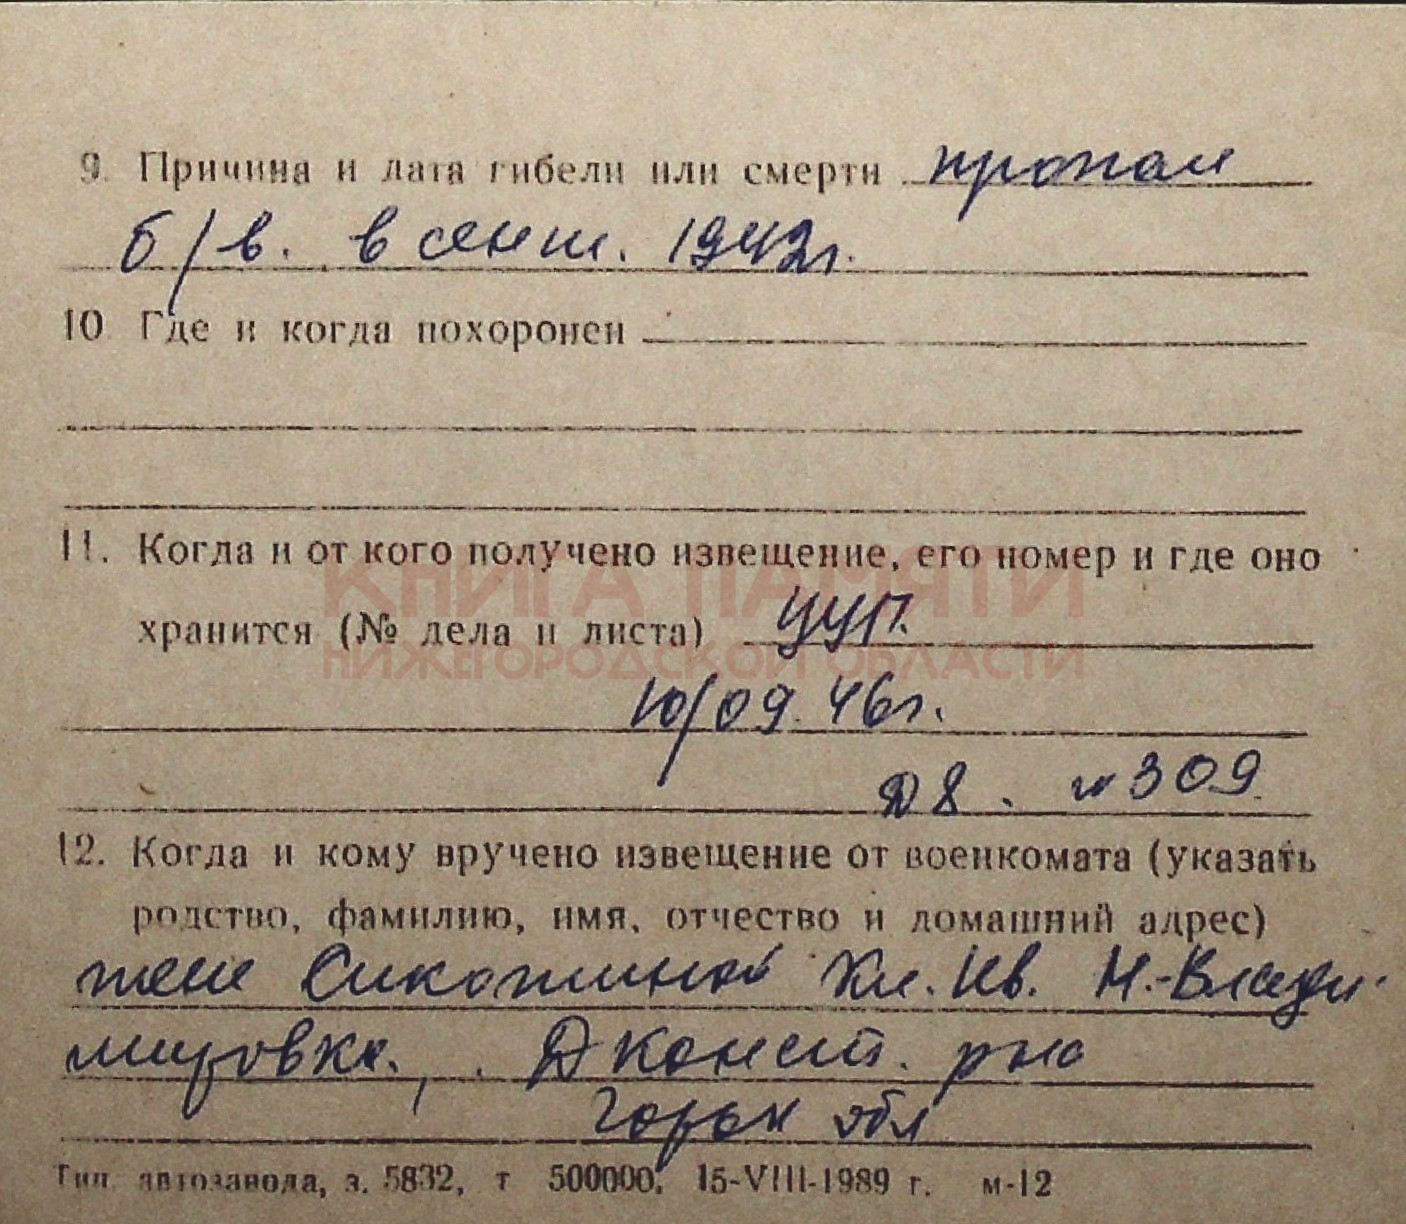 9. Причина и дата гибели или смерти пропал
б/в. в сент. 1942г.
10 Где и когда похоронен
11. Когда и от кого получено извещение, его номер и где оно
КНИГА ПАМЯТИ
хранится (№ дела и листа) ЦУП.
НИЖЕГОРОДСКОЙ ОБЛАСТИ
10/09.46г.
Д 8. 309
12. Когда и кому вручено извещение от военкомата (указать
родство, фамилию, имя, отчество и домашний адрес)
жене Ив. Н.-Влади-
мировка., Д конст. рна
Горьк обл
Тип. автозавода, з. 5832, т 500000, 15-VIII-1989 г. м-12